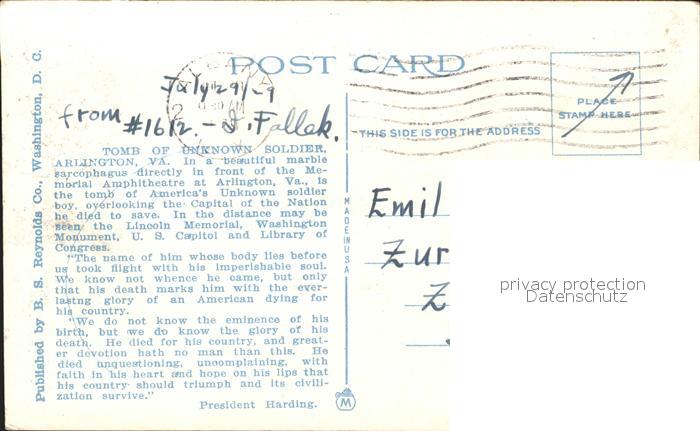 POST CARD
ALBANY
July 29/-9
from #1612.- J. Fallek.
PLACE
STAMP HERE
THIS SIDE IS FOR THE ADDRESS
Published by B. S. Reynolds Co., Washington, D. C.
TOMB OF UNKNOWN SOLDIER,
ARLINGTON, VA. In a beautiful marble
sarcophagus directly in front of the Me-
morial Amphitheatre at Arlington, Va., is
the tomb of America's Unknown soldier
boy, overlooking the Capital of the Nation
he died to save. In the distance may be
seen the Lincoln Memorial, Washington
Monument, U. S. Capitol and Library of
Congress.
"The name of him whose body lies before
us took flight with his imperishable soul.
We know not whence he came, but only
that his death marks him with the ever-
lastng glory of an American dying for
his country.
"We do not know the eminence of his
birth, but we do know the glory of his
death. He died for his country, and great-
er devotion hath no man than this. He
died unquestioning, uncomplaining, with
faith in his heart and hope on his lips that
his country should triumph and its civili-
zation survive."
President Harding.
MADE IN USA
M
Emil
Zur
Z
privacy protection
Datenschutz